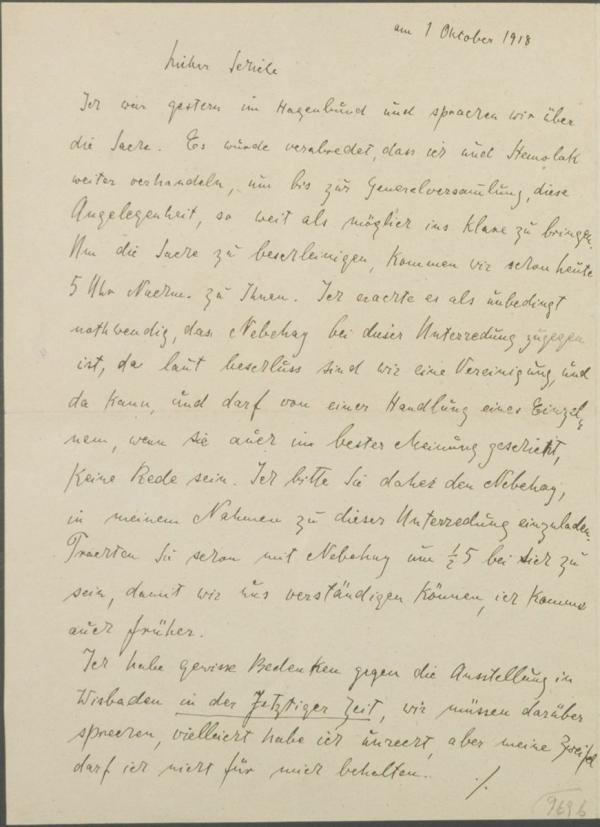 am 1 Oktober 1918
Lieber Schiele
Ich war gestern im Hagenbund und sprachen wir über
die Sache. Es wurde verabredet, dass ich und Hemolak
weiter verhandeln, um bis zur Generalversamlung, diese
Angelegenheit, so weit als möglich ins Klare zu bringen.
Um die Sache zu beschleinigen, kommen wir schon heute
5 Uhr Nachm. zu Ihnen. Ich erachte es als unbedingt
nothwendig, dass Nebehay bei dieser Unterredung zugegen
ist, da laut beschluss sind wir eine Vereinigung, und
da kann, und darf von einer Handlung eines Einzel-
nem, wenn sie auch im bester Meinung geschieht,
keine Rede sein. Ich bitte Sie daher den Nebehay,
in meinem Nahmen zu dieser Unterredung einzuladen.
Trachten Sie schon mit Nebehay um ½ 5 bei sich zu
sein, damit wir uns verständigen können, ich komme
auch früher.
Ich habe gewisse Bedenken gegen die Ausstellung in
Wisbaden in der Jetztiger Zeit, wir müssen darüber
sprechen, vielleicht habe ich unrecht, aber meine Zweifel
darf ich nicht für mich behalten. ./.
9696